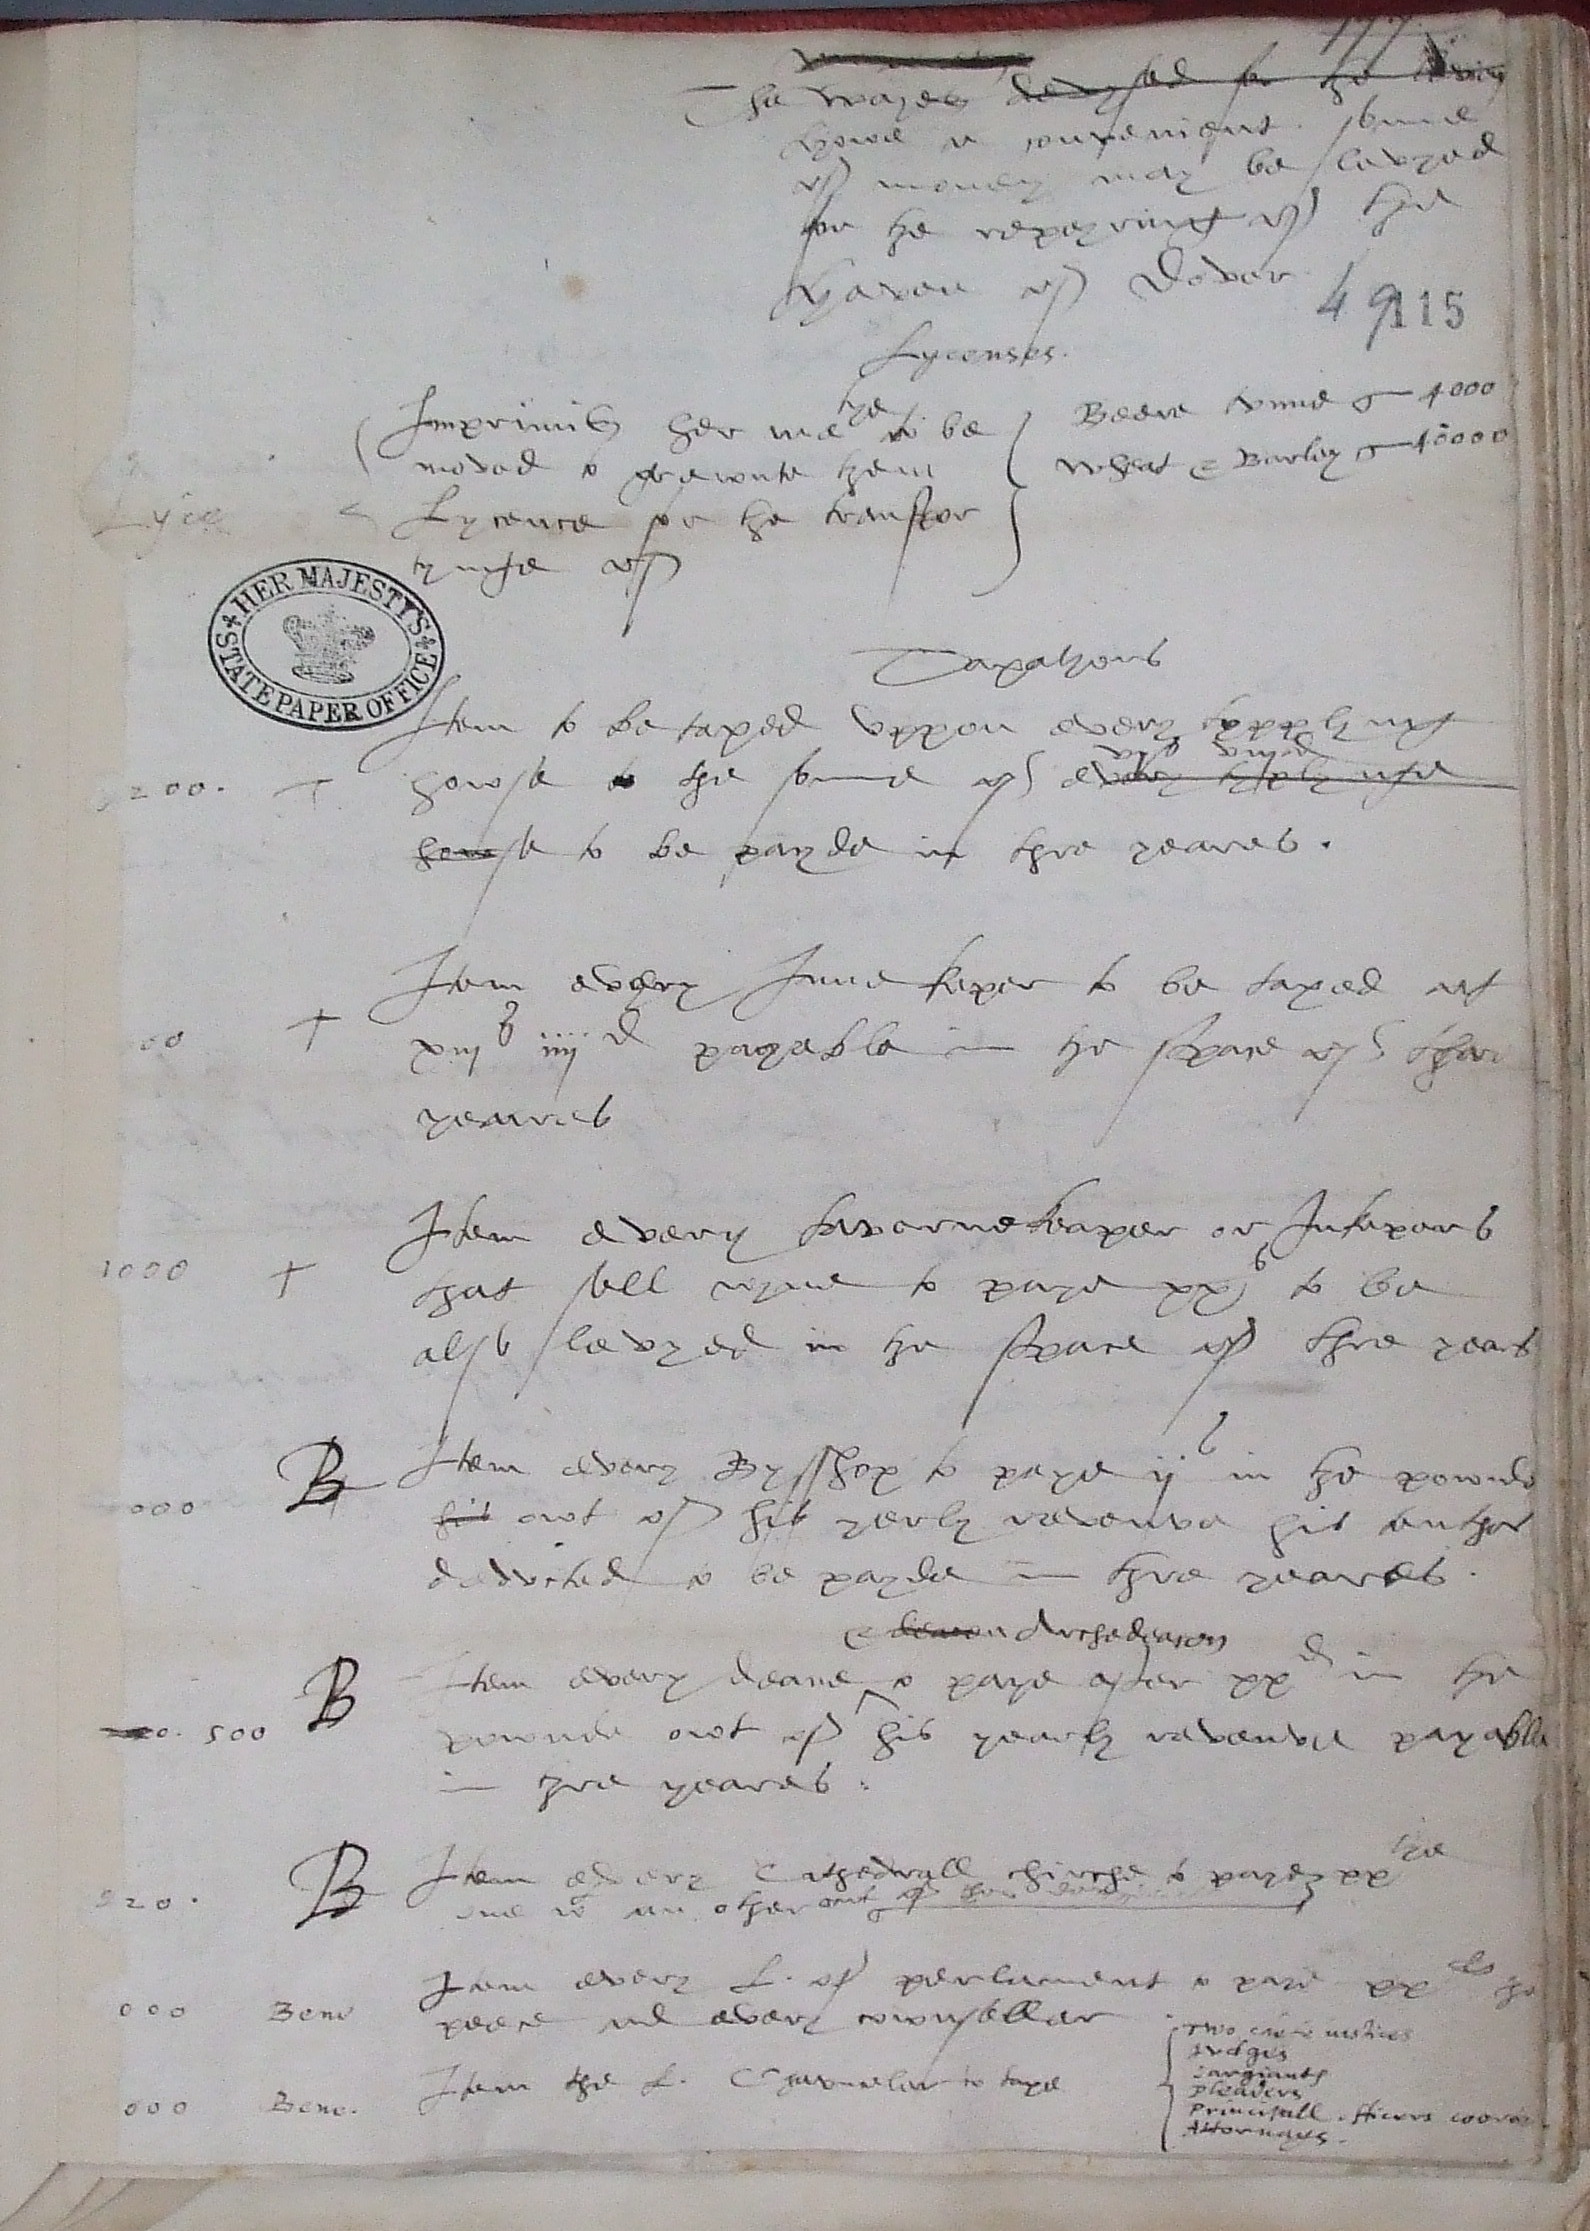 The wayes devysed for the
howe a convenient some
of money may be levyed
for the repayring of the
Haven of Dover
49 115
Lycenses.
Imprimis her matie to be
moved to grawnte them
Lycence for the transpor
tynge of
Beere tunne 4000
Wheat & Barley 40000
Lyce
HER MAJESTY'S STATE PAPER OFFICE
Taxations
Item to be taxed uppon every typplyng
howse to the some of every typlynge
howse to be payde in thre yeares.
200.
Item every Inne keper to be taxed at
xiijs iiijd payable in the space of thre
yeares
Item every tavernekeaper or Inkepers
that sell wyne to paye xxs to be
also levyed in the space of thre years
1000
B Item every Bysshop to paye ijs in the pownde
his owt of his yerly revenue his tenths
deducted to be payde in thre yeares.
000
& deacon Archedeacon
B Item every deane to paye after xxd in the
pownde owt of his yearly revenue payable
in thre yeares.
500
B Item every Cathedrall chirche to paye xxtie
one with an other owt of
Item every L. of perlament to paye xx the
peece and every cownseller
000 Bene
Item the L. Chauncelar to taxe
000 Bene.
Two cheife iustices
Judges
Sargiants
Pleaders
Principall officers
Attornayes.